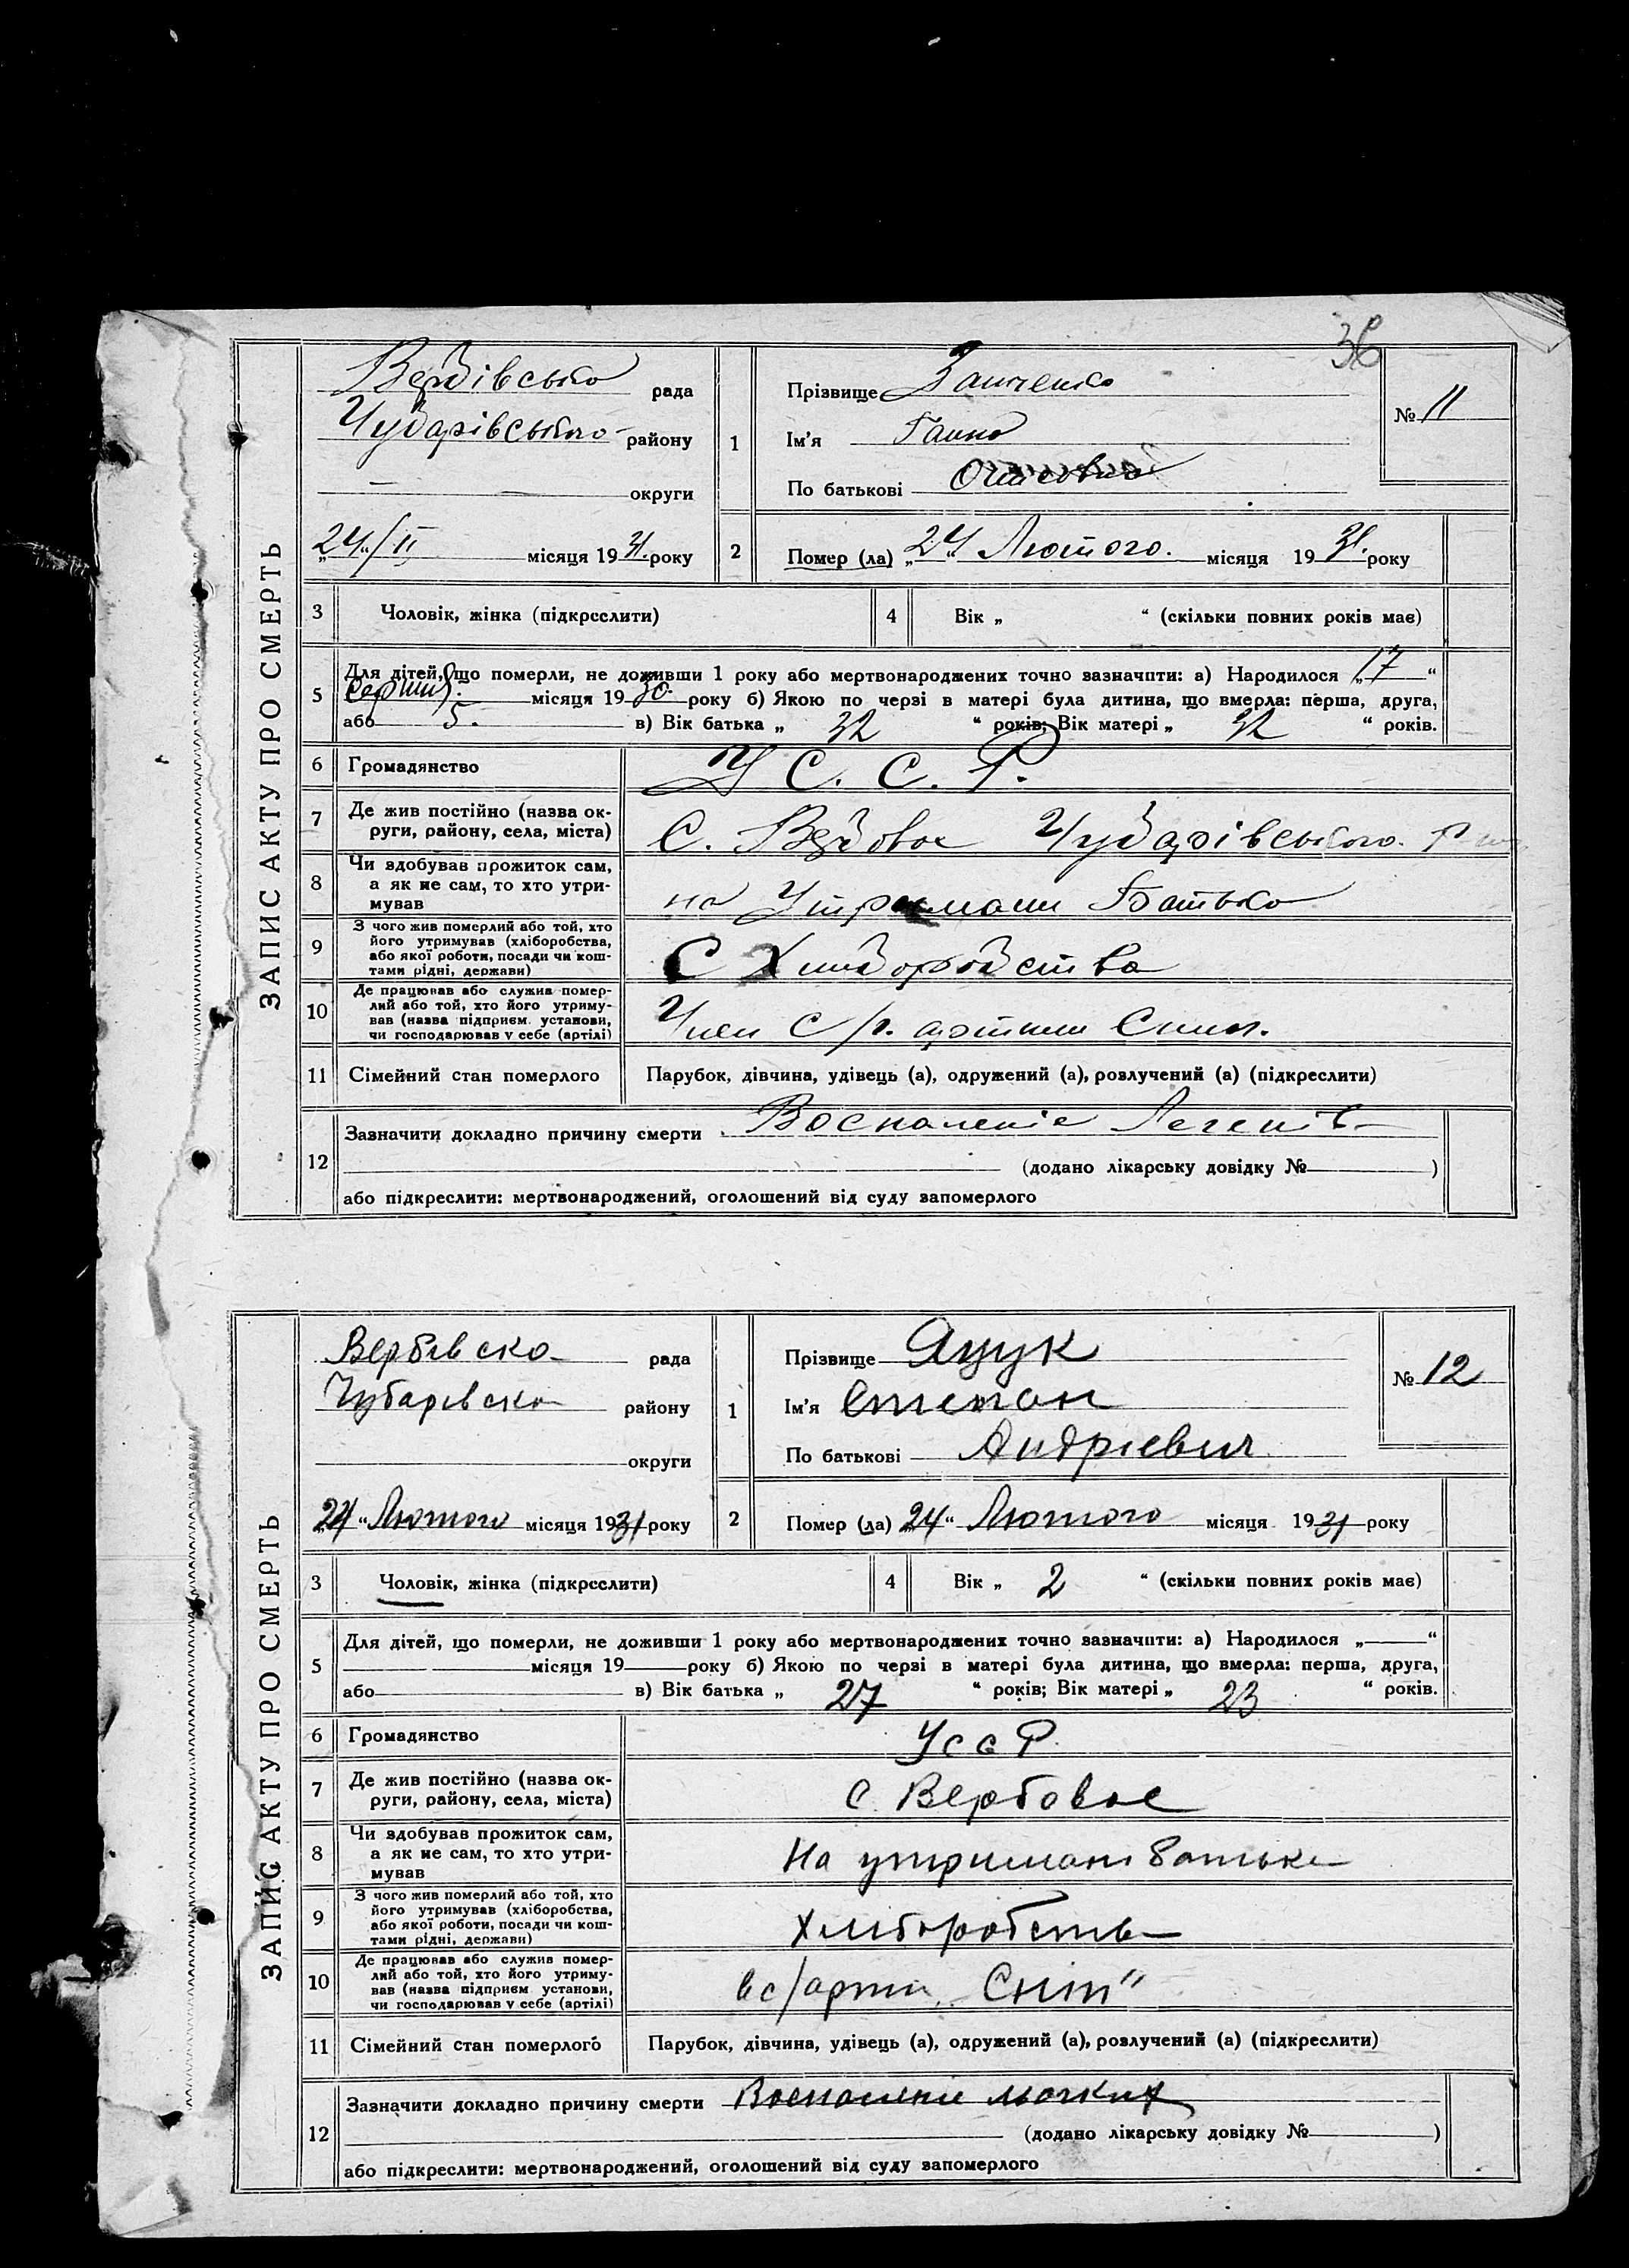 36
ЗАПИС АКТУ ПРО СМЕРТЬ
Вербівсько рада
Чубарівського району
— округи
„24“/II місяця 1931. року
1
Прізвище Занченко
Ім'я Ганна
По батькові
№ 11
2
Помер (ла) „24“ Лютого. місяця 1931. року
3 Чоловік, жінка (підкреслити)
4 Вік „ “ (скільки повних років має)
5 Для дітей, що померли, не доживши 1 року або мертвонароджених точно зазначити: а) Народилося „17“
Серпня. місяця 1930. року б) Якою по черзі в матері була дитина, що вмерла: перша, друга,
або 5. в) Вік батька „ 32 “ років; Вік матері „ 32 “ років.
6 Громадянство У С. С. Р.
7 Де жив постійно (назва округи, району, села, міста) С. Вербовое Чубарівського.
8 Чи здобував прожиток сам, а як не сам, то хто утримував на Утримани Батька
9 З чого жив померлий або той, хто його утримував (хліборобства, або якої роботи, посади чи коштами рідні, держави) С Хліборобства
10 Де працював або служив померлий або той, хто його утримував (назва підприєм. установи, чи господарював у себе (артілі) Член С/г. артили Сніп.
11 Сімейний стан померлого Парубок, дівчина, удівець (а), одружений (а), розлучений (а) (підкреслити)
12 Зазначити докладно причину смерти Воспаление Легенів
(додано лікарську довідку № )
або підкреслити: мертвонароджений, оголошений від суду запомерлого
ЗАПИС АКТУ ПРО СМЕРТЬ
Вербівска рада
Чубарівска району
округи
„24“ Лютого місяця 1931 року
1
Прізвище Яцук
Ім'я Степан
По батькові Андрієвич
№ 12
2
Помер (ла) „24“ Лютого місяця 1931 року
3 Чоловік, жінка (підкреслити)
4 Вік „ 2 “ (скільки повних років має)
5 Для дітей, що померли, не доживши 1 року або мертвонароджених точно зазначити: а) Народилося „—“
місяця 19 року б) Якою по черзі в матері була дитина, що вмерла: перша, друга,
або в) Вік батька „ 27 “ років; Вік матері „ 23 “ років.
6 Громадянство УССР.
7 Де жив постійно (назва округи, району, села, міста) с. Вербовое
8 Чи здобував прожиток сам, а як не сам, то хто утримував На утримані батька
9 З чого жив померлий або той, хто його утримував (хліборобства, або якої роботи, посади чи коштами рідні, держави) Хліборобства
10 Де працював або служив померлий або той, хто його утримував (назва підприєм. установи, чи господарював у себе (артілі) в с/арти „Сніп“
11 Сімейний стан померлого Парубок, дівчина, удівець (а), одружений (а), розлучений (а) (підкреслити)
12 Зазначити докладно причину смерти Воспалени льогких
(додано лікарську довідку № )
або підкреслити: мертвонароджений, оголошений від суду запомерлого